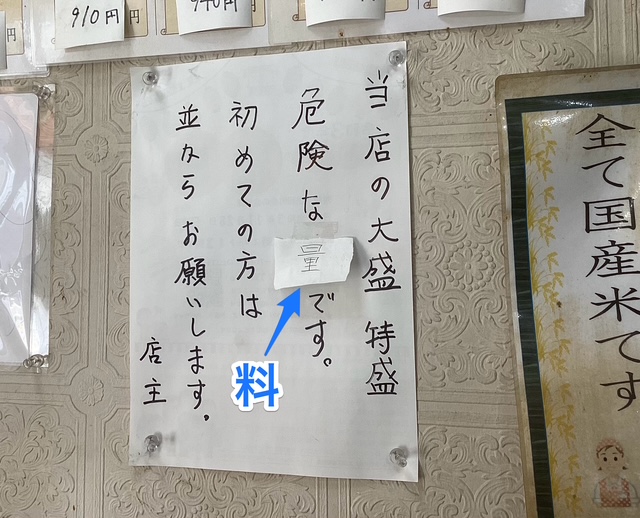 910円
940円
円
当店の大盛 特盛
危険な量です。
初めての方は
並からお願いします。
店主
料
全て国産米です